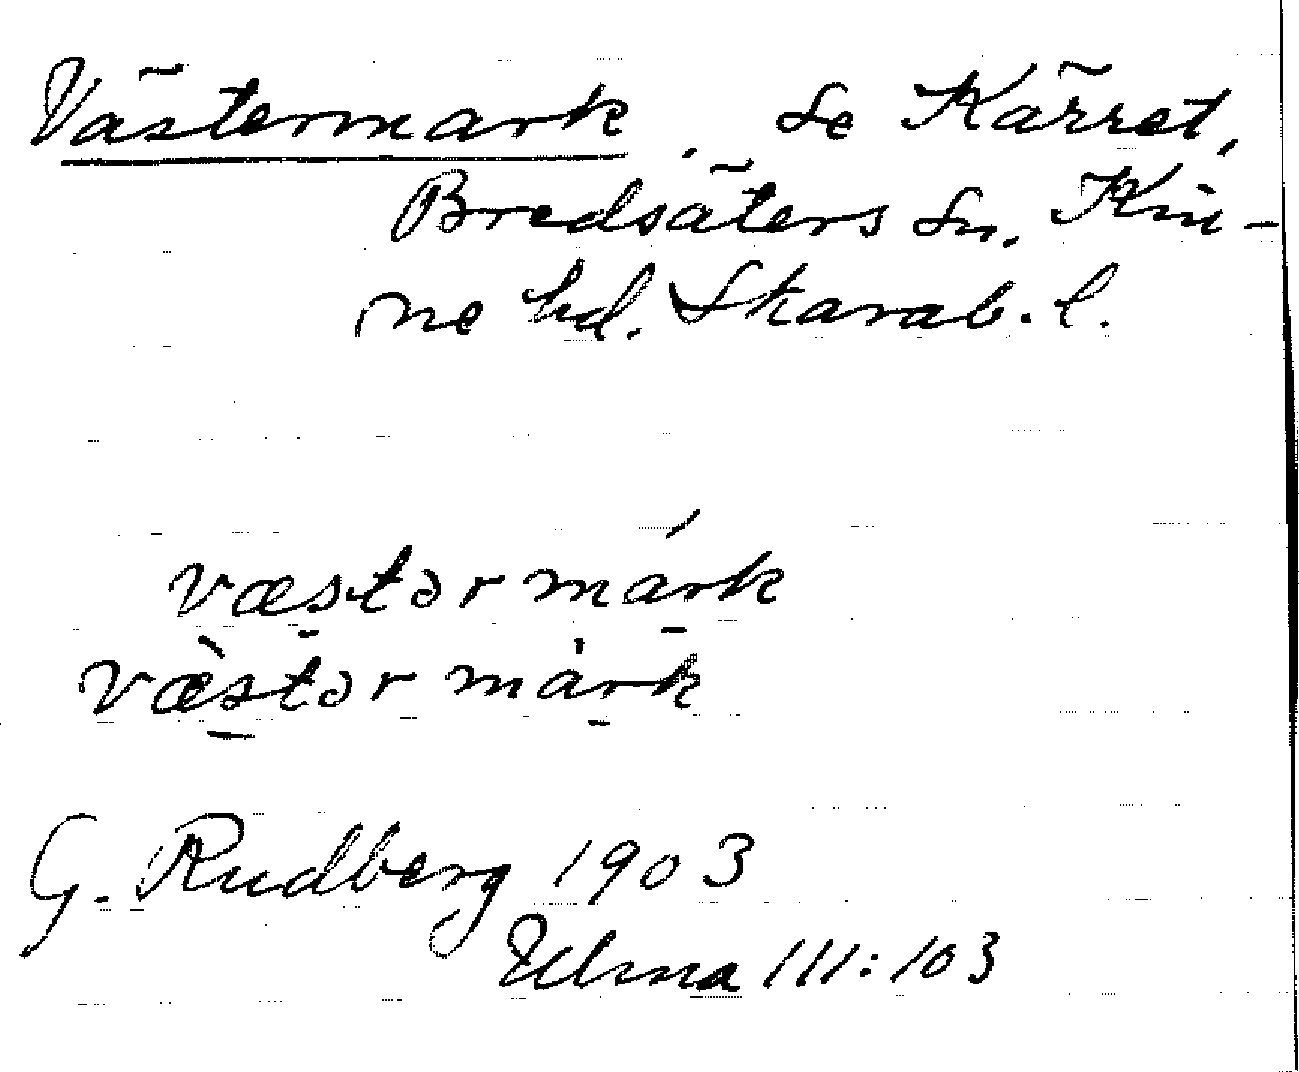 Västermark, se Kärret,
Bredsäters sn. Kin-
ne hd. Skarab. l.
væstər márk
væ̀stər mȧrk
G. Rudberg 1903
Ulma 111:103